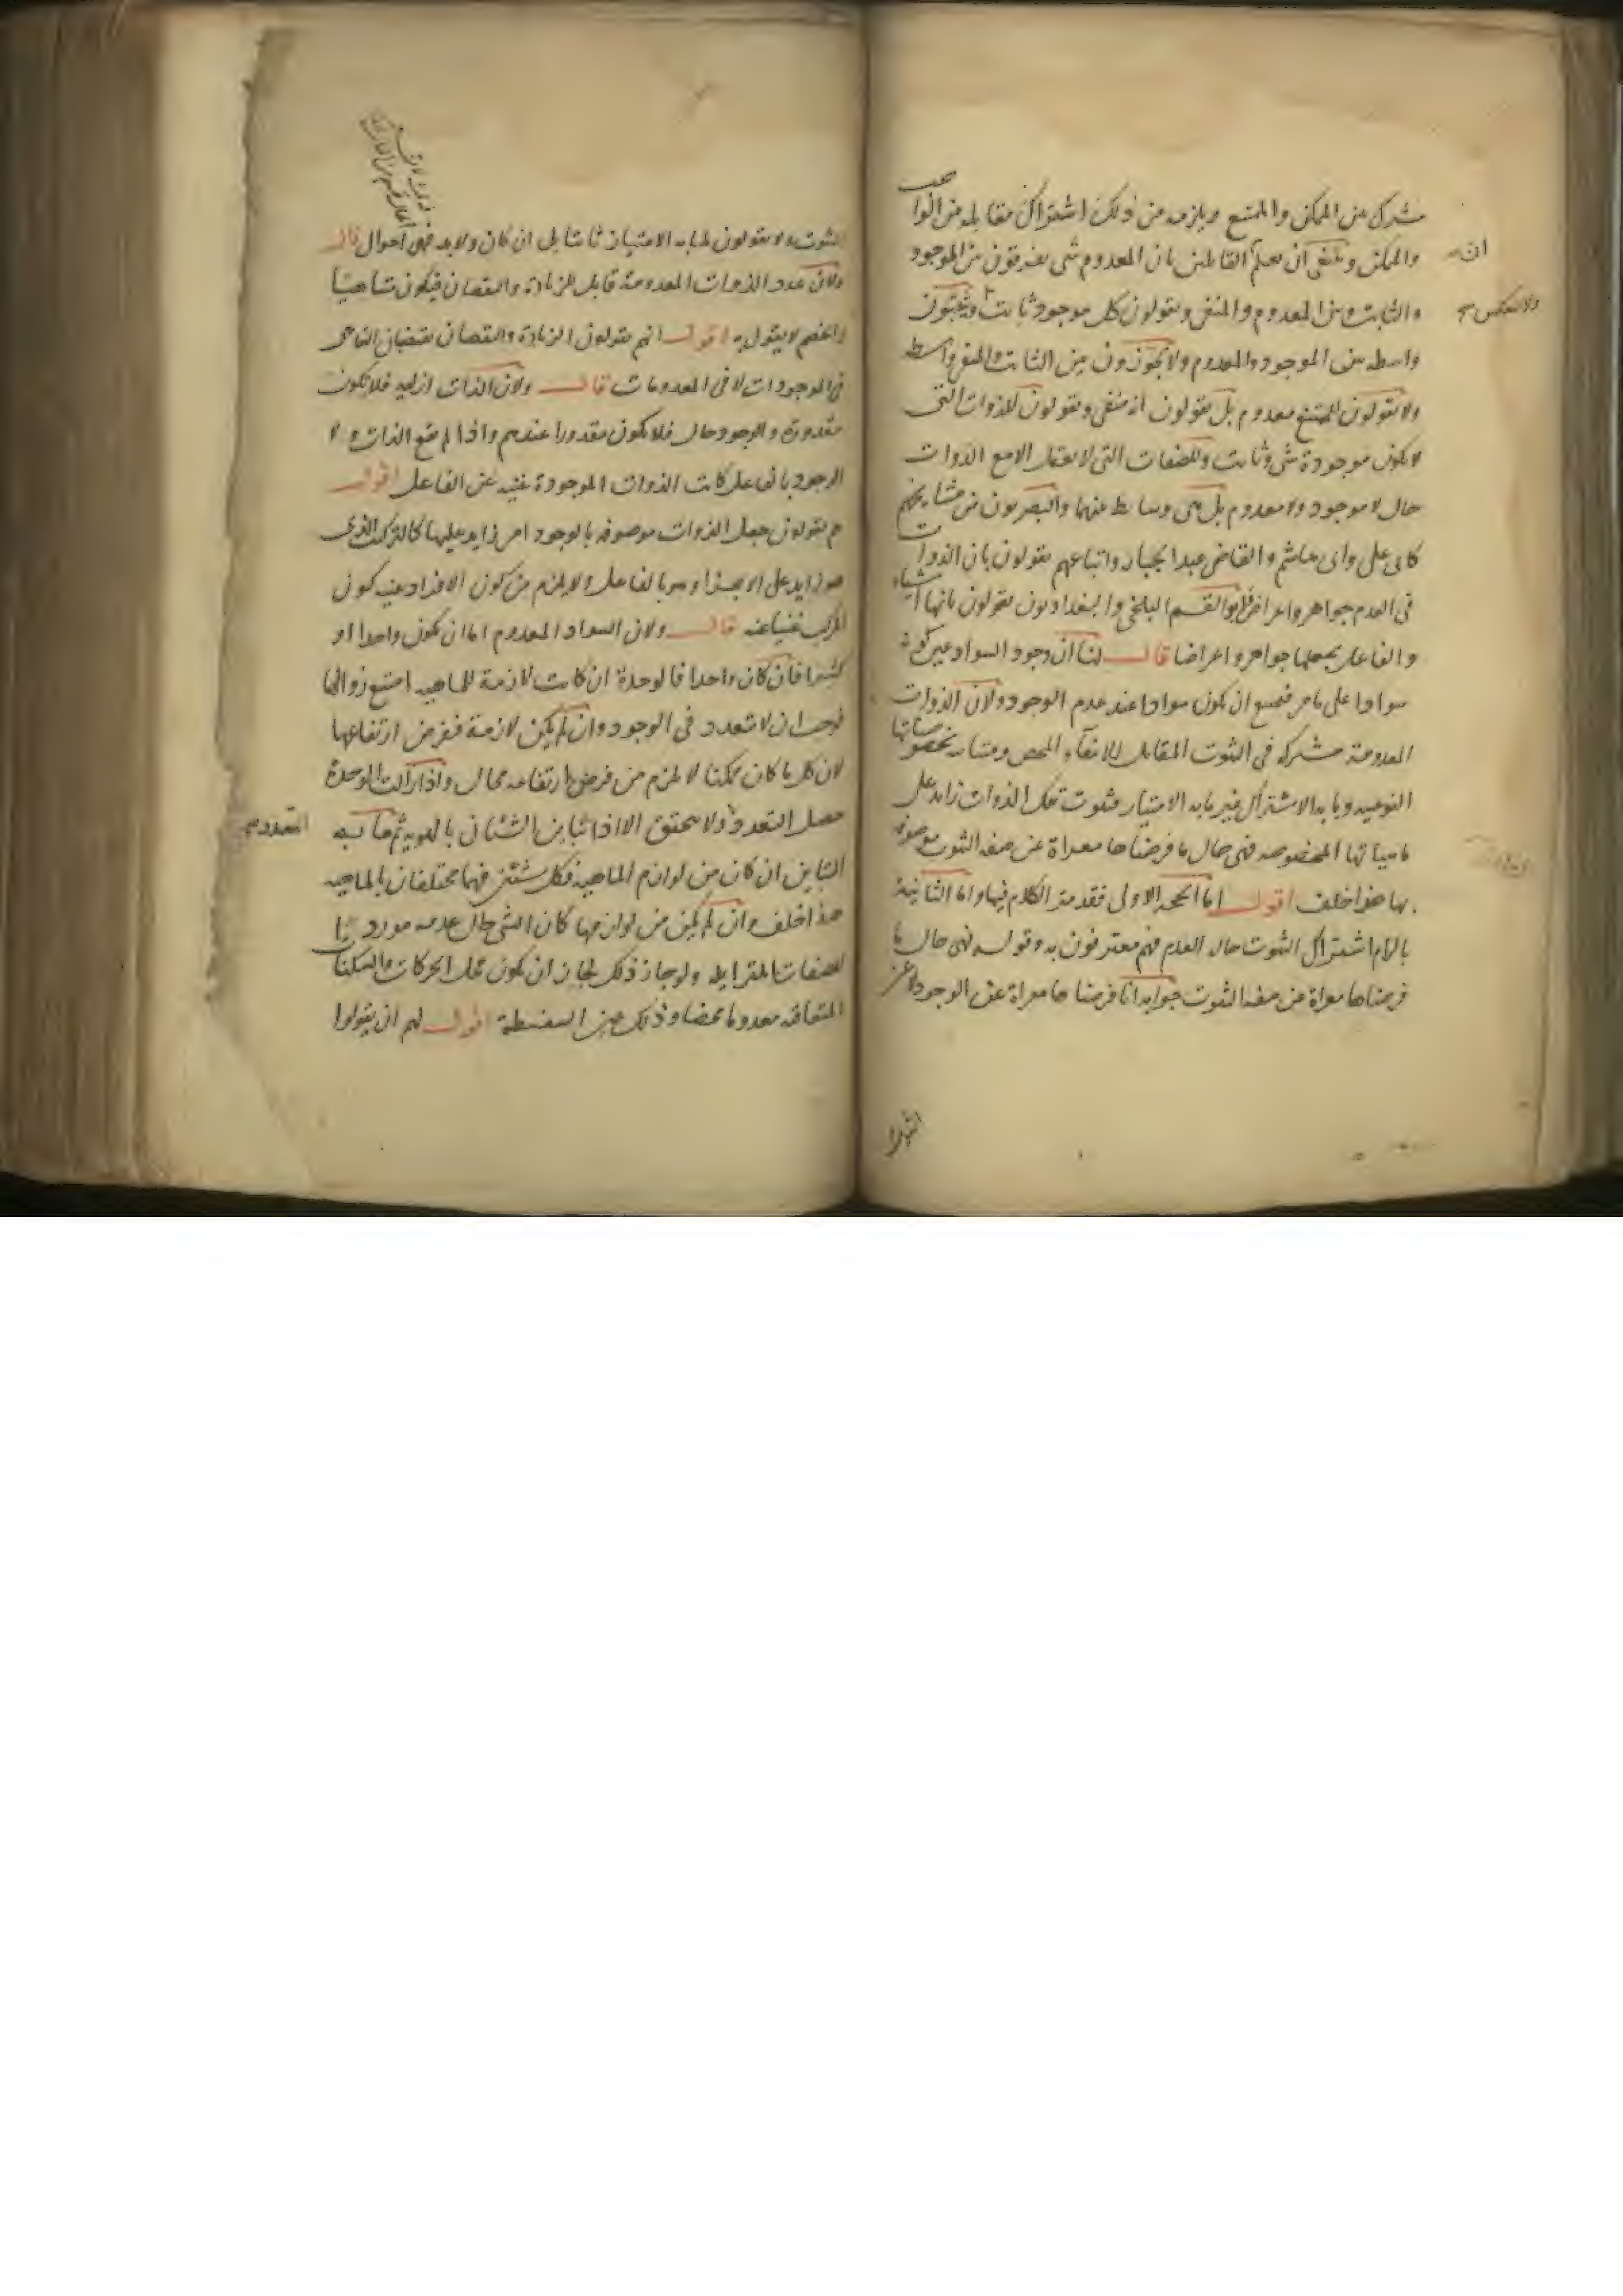 مشترك بين الممكن والممتنع ويلزمه من ذلك اشتراك مقابله بين الواجب
والممكن وينبغى ان يعلم ان القائلين بان المعدوم شى يفرقون بين الموجود
والثابت وبين المعدوم والمنفى ويقولون كل موجود ثابت ولا ينعكس ويثبتون
واسطه بين الموجود والمعدوم ولا يجوزون بين الثابت والمنفى واسطه
ولا يقولون للممتنع معدوم بل يقولون انه منفى ويقولون للذوات التى
لا يكون موجودة شى وثابت وللصفات التى لا يعقل الا مع الذوات
حال لا موجود ولا معدوم بل هى وسايط بينهما والبصريون من مشايخهم
كابى على وابى هاشم والقاضى عبد الجبار واتباعهم يقولون بان الذوات
فى العدم جواهر واعراض وابو القسم البلخى والبغداديون يقولون بانها اشياء
والفاعل يجعلها جواهر واعراضا قال لنا ان وجود السواد عين كونه
سوادا على ما مر فيمتنع ان يكون سوادا عند عدم الوجود ولان الذوات
المعدومة مشتركه فى الثبوت المقابل للانتفاء المحض ومتباينة بخصوصياتها
النوعيه وما به الاشتراك غير ما به الامتياز فثبوت تلك الذوات زايد على
ماهياتها المخصوصه فهى حال ما فرضناها معراة عن صفه الثبوت موصوفه
بها هذا خلف اقول اما الحجه الاولى فقد مر الكلام فيها واما الثانية
بالزام اشتراك الثبوت حال العدم فهم معترفون به وقوله فهى حال ما
فرضناها معراة عن صفه الثبوت جوابه انا فرضناها معراة عن الوجود لا عن
الثبوت ولا يقولون لما به الامتياز ثابتا بل ان كان ولابد فهى احوال قال
ولان عدد الذوات المعدومة قابل للزيادة والنقصان فيكون متناهيا
والخصم لا يقول به اقول انهم يقولون الزيادة والنقصان يقتضيان التناهى
فى الموجودات لا فى المعدومات قال ولان الذات ازليه فلا تكون
مقدورة والوجود حال فلا يكون مقدورا عندهم واذا لم يقع الذات ولا
الوجود بالفاعل كانت الذوات الموجودة غنيه عن الفاعل اقول
هم يقولون جعل الذوات موصوفه بالوجود امر زايد عليها كالتركيب الذى
هو زايد على الاجزاء وهو بالفاعل ولا يلزم من كون الافراد غنيه كون
المركب غنيا عنه قال ولان السواد المعدوم اما ان يكون واحدا او
كثيرا فان كان واحدا فالوحدة ان كانت لازمة للماهيه امتنع زوالها
فوجب ان لا يتعدد فى الوجود وان لم يكن لازمة فنفرض ارتفاعها
لان كل ما كان ممكنا لا يلزم من فرض ارتفاعه محال واذا زالت الوحدة
حصل التعدد ولا يتحقق الا اذا تباين الشيئان بالهويه ثم ما به
التباين ان كان من لوازم الماهيه فكل شيئين فهما مختلفان بالماهيه
هذا خلف وان لم يكن من لوازمها كان الشى حال عدمه موردا
للصفات المتزايله ولو جاز ذلك لجاز ان يكون محل الحركات والسكنات
المتعاقبه معدوما محضا وذلك عين السفسطة اقول لهم ان يقولوا